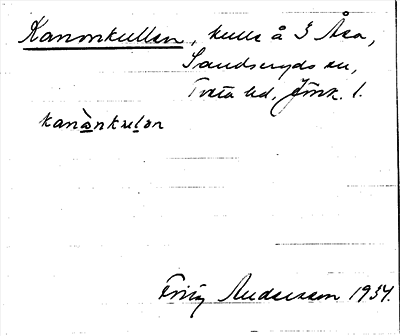 Kanonkullen, kulle å I Åsa,
Sandseryds sn,
Tveta hd, Jönk. l.
kanònkulən
Fritz Andersson 1934.